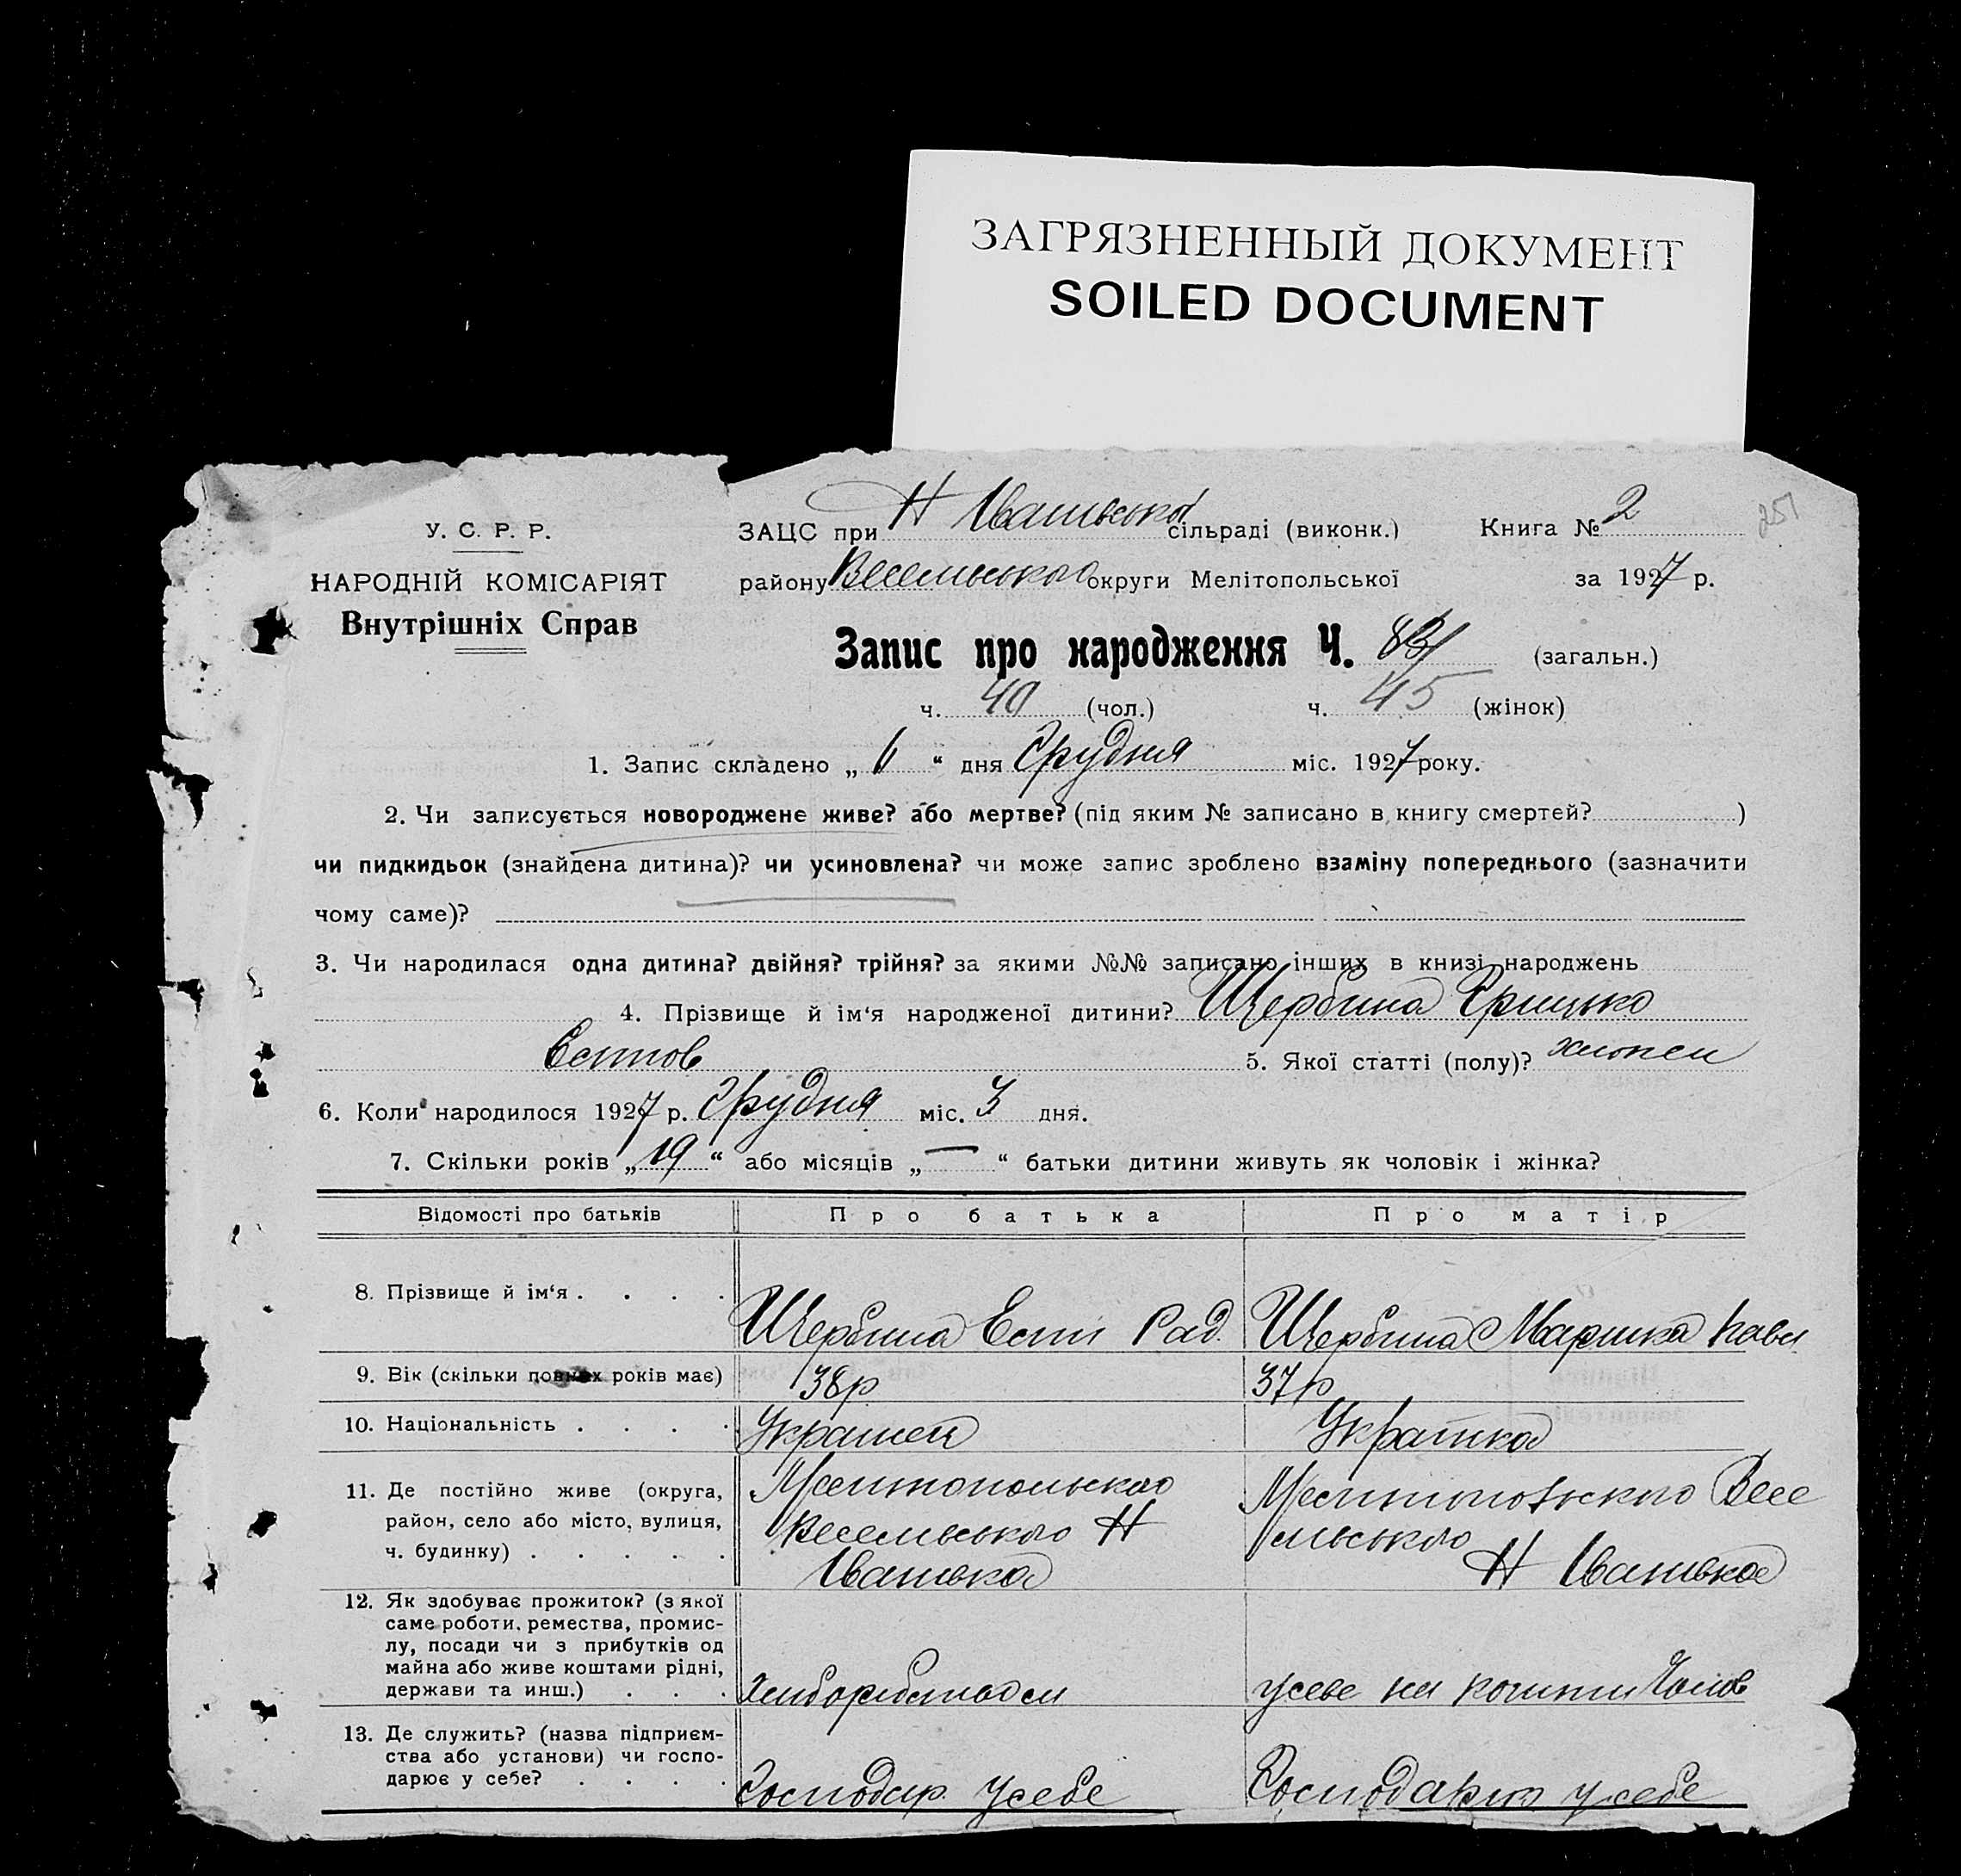 ЗАГРЯЗНЕННЫЙ ДОКУМЕНТ
SOILED DOCUMENT
У. С. Р. Р.
НАРОДНІЙ КОМІСАРІЯТ
Внутрішніх Справ
ЗАЦС при Н Іванівській сільраді (виконк.) Книга № 2
251
району Веселівського округи Мелітопольської за 1927 р.
Запис про народження Ч. (загальн.)
ч. 40 (чол.) ч. 45 (жінок)
1. Запис складено „ 6 “ дня Грудня міс. 1927 року.
2. Чи записується новороджене живе? або мертве? (під яким № записано в книгу смертей? )
чи пидкидьок (знайдена дитина)? чи усиновлена? чи може запис зроблено взаміну попереднього (зазначити
чому саме)?
3. Чи народилася одна дитина? двійня? трійня? за якими №№ записано інших в книзі народжень
4. Прізвище й ім‘я народженої дитини? Щербина Грицько
Єстпов 5. Якої статті (полу)? хлопец
6. Коли народилося 1927 р. Грудня міс. 3 дня.
7. Скільки років „ 19 “ або місяців „ — “ батьки дитини живуть як чоловік і жінка?
Відомості про батьків Про батька Про матір
8. Прізвище й ім‘я . . . . Щербина Естп Рад. Щербина Маришка Павл
9. Вік (скільки повних років має) 38р 37р
10. Національність . . . . Українец Українка
11. Де постійно живе (округа, район, село або місто, вулиця, ч. будинку) . . . . .
Мелітопольского
Веселівського Н
Іванівка
Мелітопольского Весе
лівського
Н Іванівка
12. Як здобуває прожиток? (з якої
саме роботи, ремества, промис-
лу, посади чи з прибутків од
майна або живе коштами рідні,
держави та инш.) . . . Хліборобством живе на кошти Чолов
13. Де служить? (назва підприєм-
ства або установи) чи госпо-
дарює у себе? . . . . Господар. усебе Господарює усебе